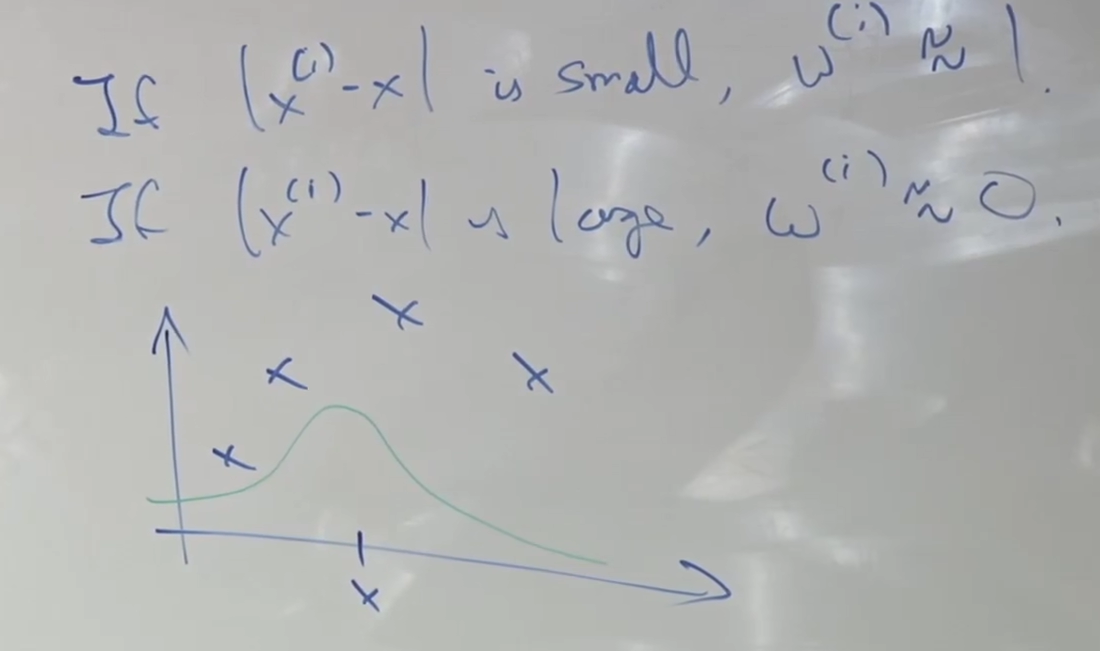 If |x^(i) - x| is small, w^(i) ≈ 1.
If |x^(i) - x| is large, w^(i) ≈ 0.
x